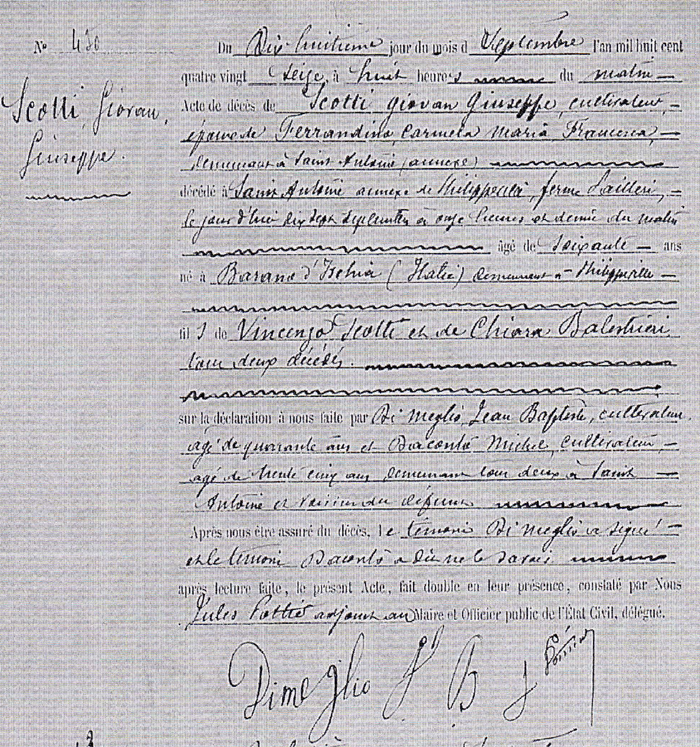 N° 430
Du Dix-huitième jour du mois d Septembre l'an mil huit cent
quatre vingt seize, à huit heures du matin
Scotti, Giovan,
Giuseppe.
Acte de décès de Scotti giovan Giuseppe cultivateur,
époux de Ferrandino, Carmela Maria Francesca,
demeurant à Saint Antoine (annexe)
décédé à Saint Antoine annexe de Philippeville, ferme
le jour d'hier dix sept septembre à onze heures et demie du matin
âgé de soixante ans
né à Barano d'Ischia (Italie) demeurant à Philippeville
fils de Vincenzo Scotti et de Chiara Balestrieri
tous deux décédés.
sur la déclaration à nous faite par Di meglio, Jean Baptiste, cultivateur,
agé de quarante ans et Baconto Michel, cultivateur,
agé de trente cinq ans demeurant tous deux à Saint
Antoine et voisins du défunt
Après nous être assuré du décès. Le témoin Di meglio a signé
et le témoin Baconto a dit ne le savoir
après lecture faite, le présent Acte, fait double en leur présence, constaté par Nous
Jules adjoint au Maire et Officier public de l'État Civil, délégué.
Dimeglio J B